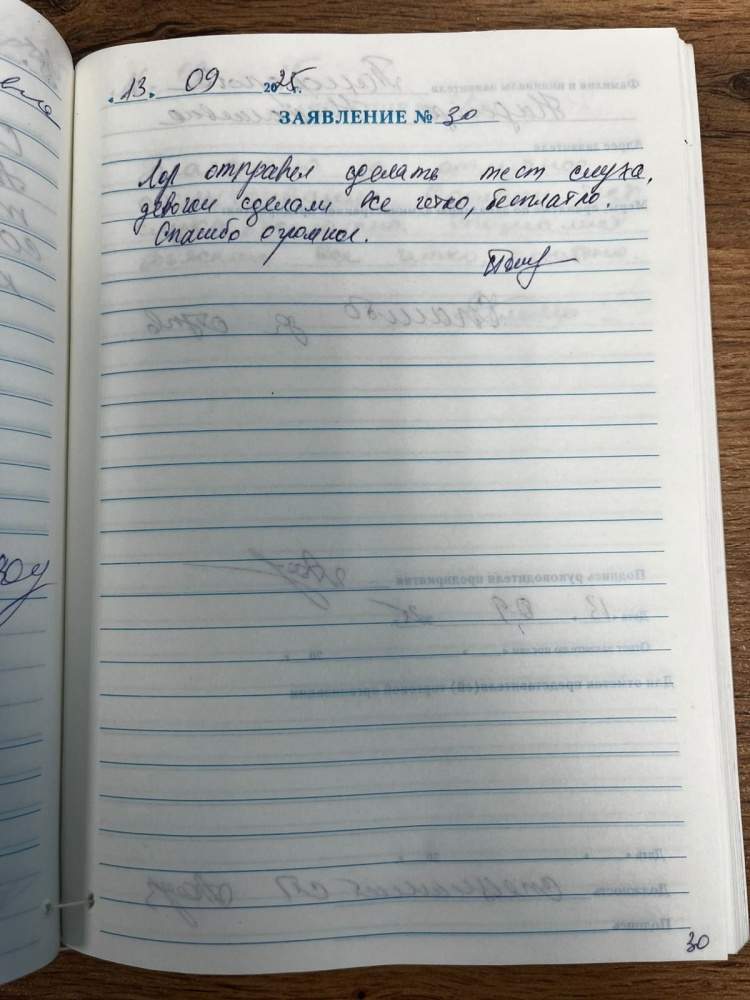 13. 09 2025г.
ЗАЯВЛЕНИЕ № 30
Лор отправел сделать тест слуха,
девочки сделали все четко, бесплатно.
Спасибо огромное.
30